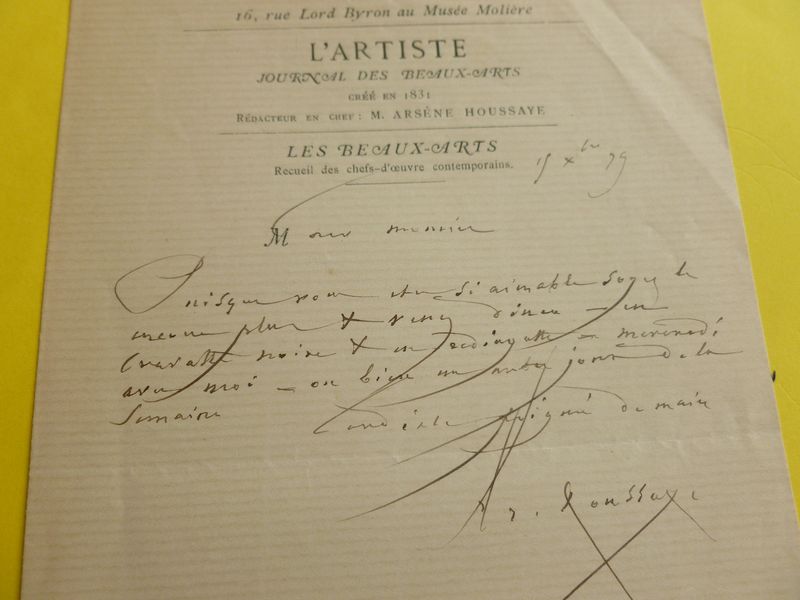 16, rue Lord Byron au Musée Molière
L'ARTISTE
JOURNAL DES BEAUX-ARTS
CRÉÉ EN 1831
RÉDACTEUR EN CHEF : M. ARSÈNE HOUSSAYE
LES BEAUX-ARTS
Recueil des chefs-d'œuvre contemporains.
15 Xbre 79
M
Puisque vous êtes si aimable soyez le
encore plus & venez dîner — en
Cravatte noire & en redingotte — mercredi
avec moi — ou bien un autre jour de la
Semaine
Cordiale poignée de main
Ar. Houssaye